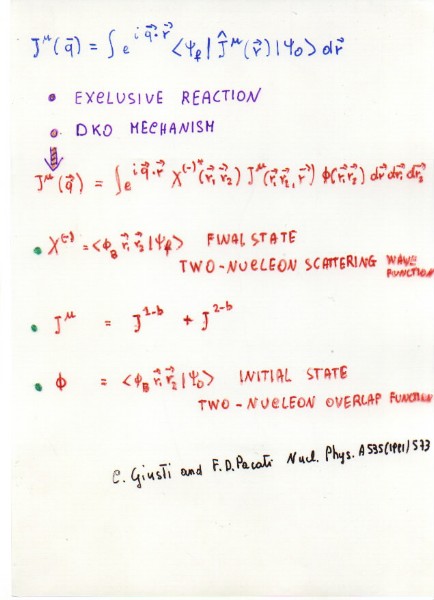 J^μ(q⃗) = ∫e^{i q⃗·r⃗} <ψ_f | Ĵ^μ(r⃗) | ψ_0> dr⃗
• EXCLUSIVE REACTION
• DKO MECHANISM
⇓
J^μ(q⃗) = ∫e^{i q⃗·r⃗} χ^{(-)*}(r⃗_1 r⃗_2) J^μ(r⃗_1 r⃗_2, r⃗) ϕ(r⃗_1 r⃗_2) dr⃗ dr⃗_1 dr⃗_2
• χ^{(-)} = <ϕ_B r⃗_1 r⃗_2 | ψ_f> FINAL STATE
TWO-NUCLEON SCATTERING WAVE FUNCTION
• J^μ = J^{1-b} + J^{2-b}
• ϕ = <ϕ_B r⃗_1 r⃗_2 | ψ_0> INITIAL STATE
TWO-NUCLEON OVERLAP FUNCTION
C. Giusti and F.D. Pacati Nucl. Phys. A 535 (1991) 573